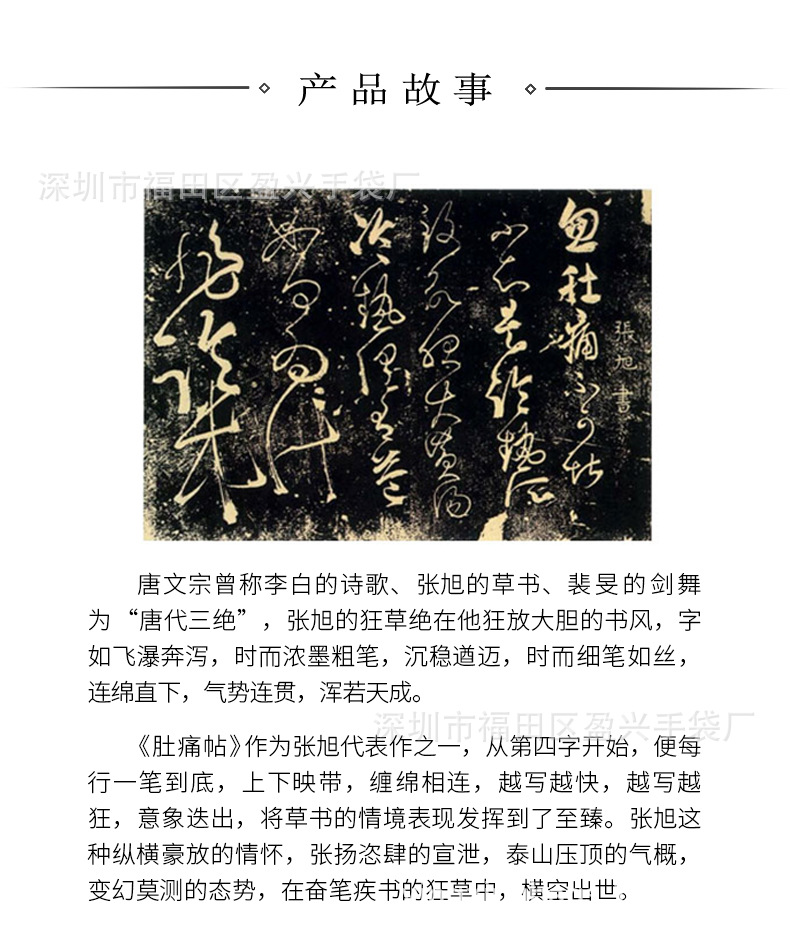 产品故事
深圳市福田区盈兴手袋厂
張旭書
忽肚痛不可堪
不知是冷热所
致欲服大黄汤
冷热俱有益
如何为计
唐文宗曾称李白的诗歌、张旭的草书、裴旻的剑舞
为“唐代三绝”，张旭的狂草绝在他狂放大胆的书风，字
如飞瀑奔泻，时而浓墨粗笔，沉稳遒迈，时而细笔如丝，
连绵直下，气势连贯，浑若天成。
深圳市福田区盈兴手袋厂
《肚痛帖》作为张旭代表作之一，从第四字开始，便每
行一笔到底，上下映带，缠绵相连，越写越快，越写越
狂，意象迭出，将草书的情境表现发挥到了至臻。张旭这
种纵横豪放的情怀，张扬恣肆的宣泄，泰山压顶的气概，
变幻莫测的态势，在奋笔疾书的狂草中，横空出世。